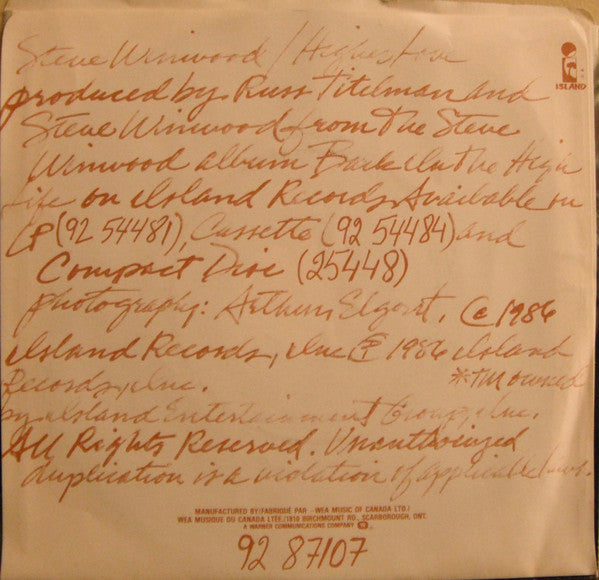 Steve Winwood / Higher Love
ISLAND
produced by Russ Titelman and
Steve Winwood from the Steve
Winwood album Back In The High
Life on Island Records, Available on
LP (92 54481), Cassette (92 54484) and
Compact Disc (25448)
photography: Arthur Elgort. © 1986
Island Records, Inc ℗ 1986 Island
Records, Inc. *TM owned
by Island Entertainment Group, Inc.
All Rights Reserved. Unauthorized
duplication is a violation of applicable laws.
MANUFACTURED BY/FABRIQUÉ PAR - WEA MUSIC OF CANADA LTD./
WEA MUSIQUE DU CANADA LTÉE./1810 BIRCHMOUNT RD., SCARBOROUGH, ONT.
A WARNER COMMUNICATIONS COMPANY
92 87107